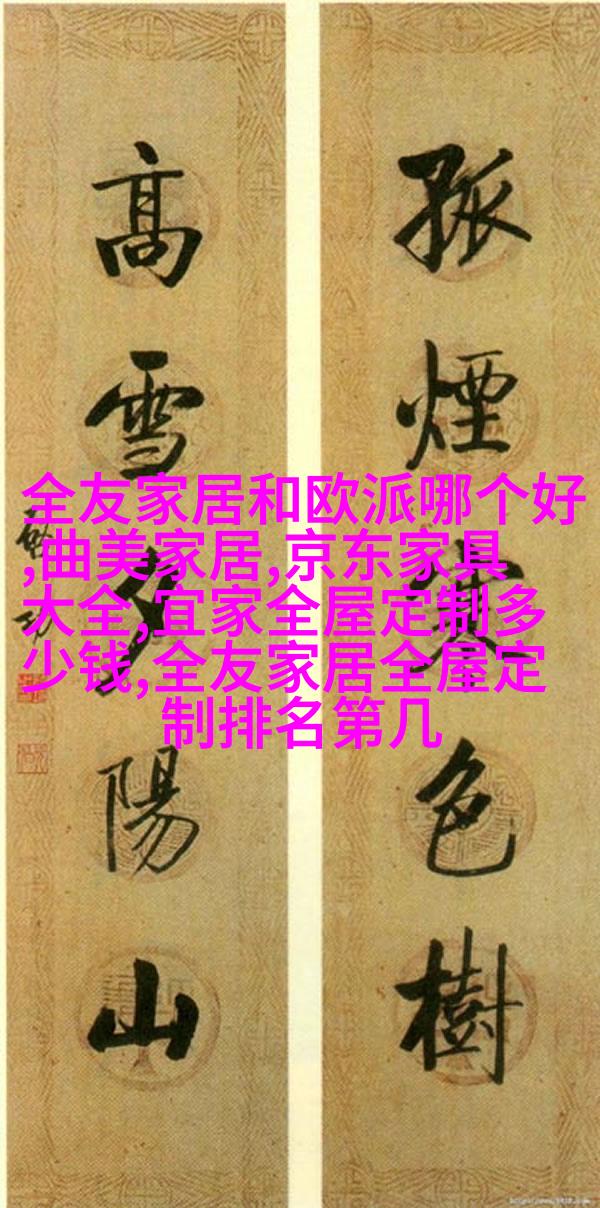 孤煙
色樹
高雪夕陽山
全友家居和欧派哪个好
,曲美家居,京东家具
大全,宜家全屋定制多
少钱,全友家居全屋定
制排名第几